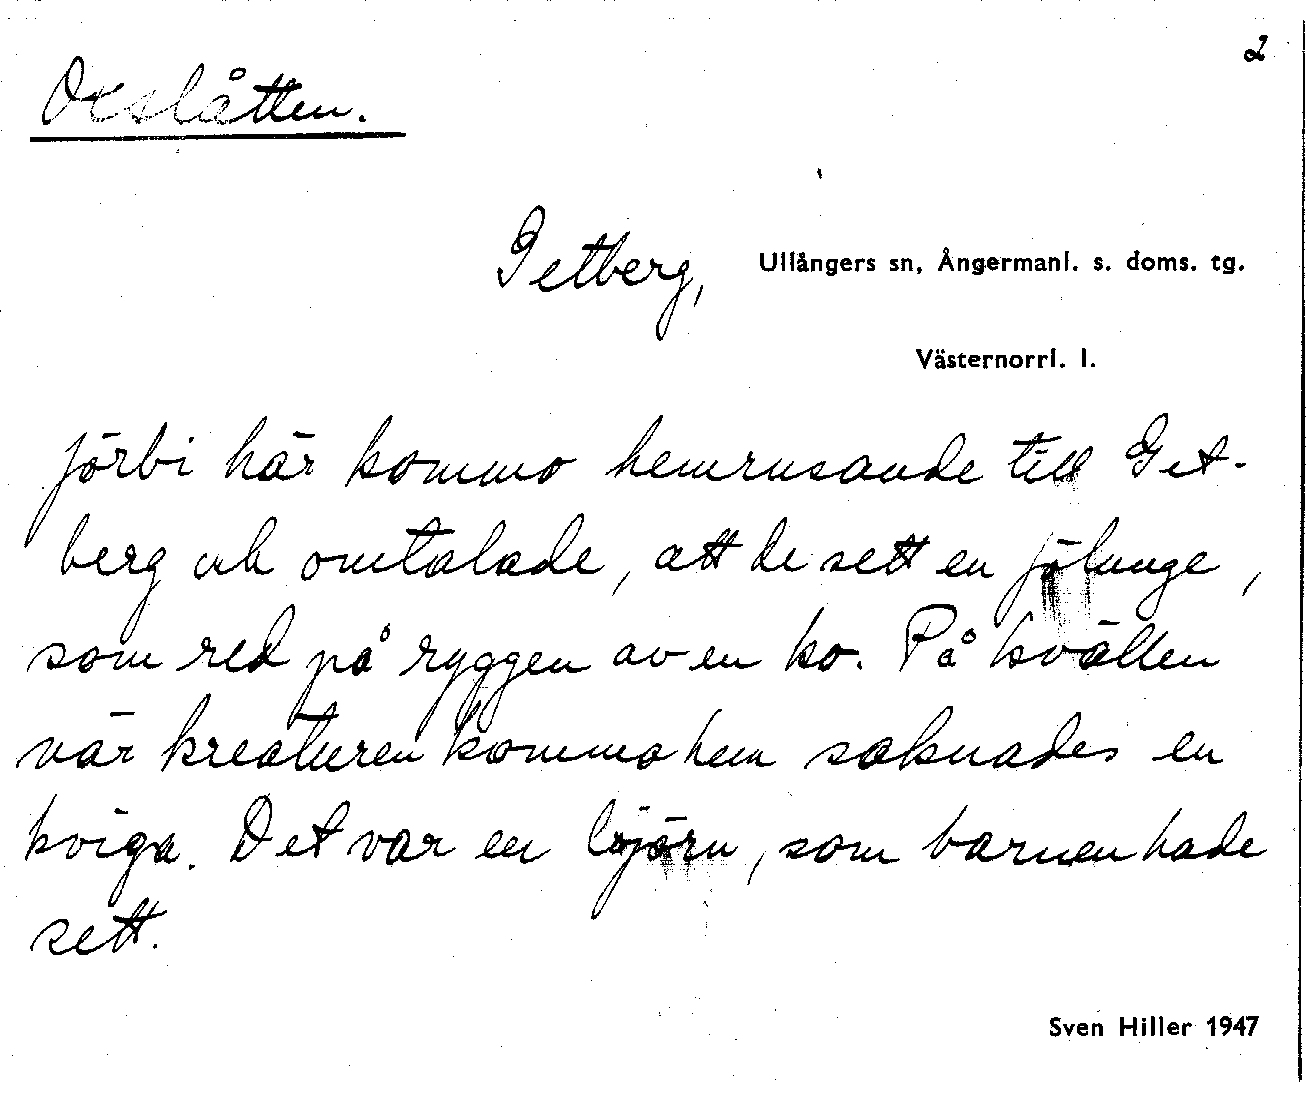 2
Orslåtten.
Getberg, Ullångers sn, Ångermanl. s. doms. tg.
Västernorrl. l.
förbi här kommo hemrusande till Get-
berg och omtalade, att de sett en fölunge,
som red på ryggen av en ko. På kvällen
när kreaturen kommo hem saknades en
kviga. Det var en björn, som barnen hade
sett.
Sven Hiller 1947